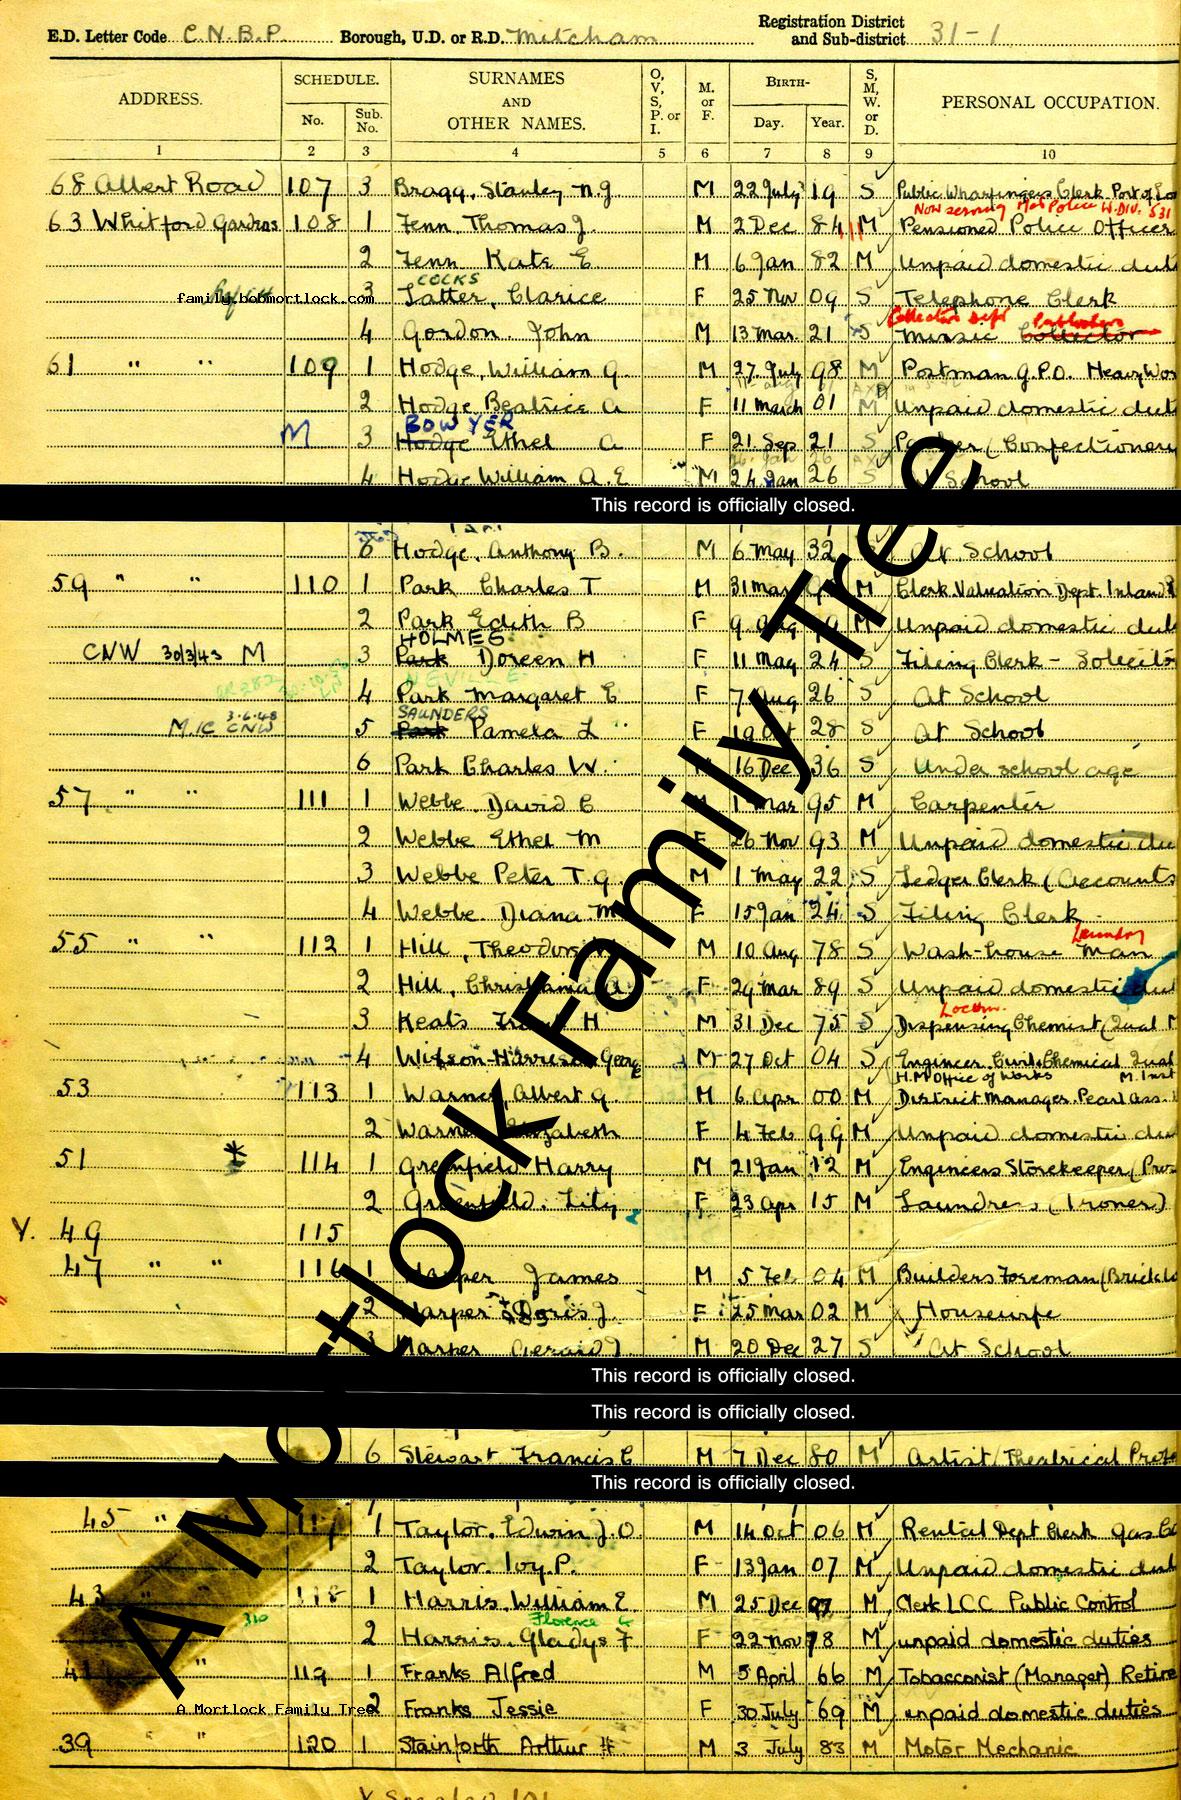 E.D. Letter Code C.N.B.P. Borough, U.D. or R.D. Mitcham Registration District and Sub-district 31-1
ADDRESS. SCHEDULE. No. Sub. No. SURNAMES AND OTHER NAMES. O, V, S, P. or I. M. or F. BIRTH- Day. Year. S, M, W. or D. PERSONAL OCCUPATION.
1 2 3 4 5 6 7 8 9 10
68 Albert Road 107 3 Bragg, Stanley N.J M 22 July 19 S Public Wharfingers Clerk Port of Lo
Now serving Met Police W. DIV. 531
63 Whitford Gardens 108 1 Fenn Thomas J. M 2 Dec 84 M Pensioned Police Officer
2 Fenn Kate E M 6 Jan 82 M Unpaid domestic dut
COCKS
family.bobmortlock.com 3 Latter, Clarice F 25 Nov 09 S Telephone Clerk
Collectors Dept Publishers
4 Gordon, John M 13 Mar 21 S Music Collector
61 " " 109 1 Hodge, William G. M 27 July 98 M Postman G.P.O. Heavy Wor
2 Hodge Beatrice A F 11 March 01 M Unpaid domestic dut
BOWYER
M 3 Hodge Ethel A F 21 Sep 21 S Packer (Confectionery
4 Hodge William A. E M 24 Jan 26 S At School
This record is officially closed.
6 Hodge, Anthony B. M 6 May 32 S At School
59 " " 110 1 Park Charles T M 31 Mar M Clerk Valuation Dept. Inland R
2 Park Edith B F 9 Aug M Unpaid domestic dut
HOLMES
CNW 30/3/43 M 3 Park Doreen H F 11 May 24 S Filing Clerk - Solicito
NEVILLE
4 Park Margaret E F 7 Aug 26 S At School
SAUNDERS
3.6.48 M.IC CNW 5 Park Pamela L F 19 Oct 28 S At School
6 Park Charles W. M 16 Dec 36 S Under school age
57 " " 111 1 Webbe David C M 1 Mar 95 M Carpenter
2 Webbe Ethel M F 26 Nov 93 M Unpaid domestic du
3 Webbe Peter T. G M 1 May 22 S Ledger Clerk (Accounts
4 Webbe Diana M F 15 Jan 24 S Filing Clerk
Laundry
55 " " 112 1 Hill, Theodore M 10 Aug 78 S Wash-house Man
2 Hill, Christiana A. F 29 Mar 89 S Unpaid domestic dut
Locum
3 Keats Frank H M 31 Dec 75 S Dispensing Chemist (Qual M
4 Wilson-Harrison George M 27 Oct 04 S Engineer Civil & Chemical Qual
H.M Office of Works M. Inst
53 113 1 Warner, Albert G. M 6 Apr 00 M District Manager. Pearl Ass.
2 Warner Elizabeth F 4 Feb 99 M Unpaid domestic du
51 * 114 1 Greenfield Harry M 21 Jan 12 M Engineers Storekeeper (Pro
2 Greenfield. Lily F 23 Apr 15 M Laundress (Ironer)
Y. 49 115
47 " " 116 1 Harper James M 5 Feb 04 M Builders Foreman (Brickla
2 Harper Doris J. F 25 Mar 02 M Housewife
3 Harper Gerald J M 20 Dec 27 S At School
This record is officially closed.
This record is officially closed.
6 Stewart Francis C M 7 Dec 80 M Artist (Theatrical Profe
This record is officially closed.
45 " " 117 1 Taylor, Edwin J. O. M 14 Oct 06 M Rental Dept Clerk Gas Co
2 Taylor. Ivy. P. F 13 Jan 07 M Unpaid domestic dut
43 " " 118 1 Harris William E M 25 Dec 97 M Clerk LCC Public Control
310 Florence G
2 Harris. Gladys F F 22 Nov 98 M unpaid domestic duties
41 " 119 1 Franks Alfred M 5 April 66 M Tobacconist (Manager) Retire
A Mortlock Family Tree 2 Franks Jessie F 30 July 69 M unpaid domestic duties
39 " " 120 1 Stainforth Arthur H M 3 July 83 M Motor Mechanic
A Mortlock Family Tree